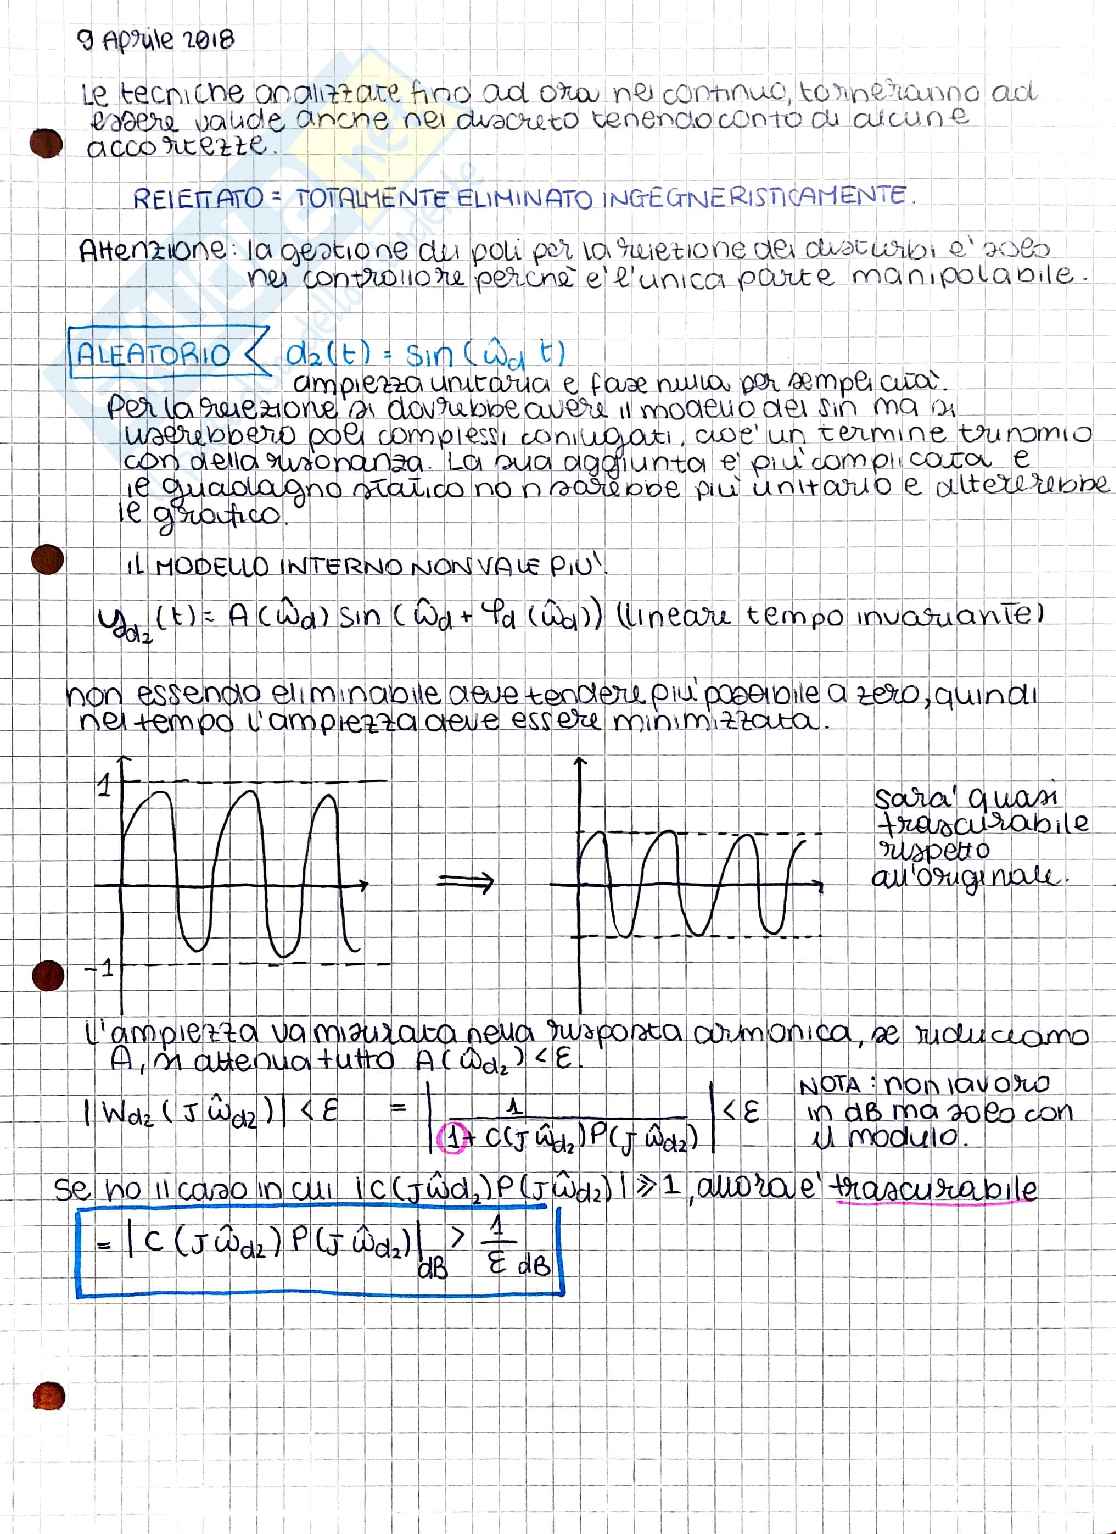 9 Aprile 2018
Le tecniche analizzate fino ad ora nel continuo, torneranno ad
essere valide anche nel discreto tenendo conto di alcune
accortezze.
REIETTATO = TOTALMENTE ELIMINATO INGEGNERISTICAMENTE.
Attenzione: la gestione dei poli per la reiezione dei disturbi e' solo
nel controllore perchè e' l'unica parte manipolabile.
ALEATORIO < d₂(t) = sin(ω̂d t)
ampiezza unitaria e fase nulla per semplicità.
Per la reiezione si dovrebbe avere il modello del sin ma si
userebbero poli complessi coniugati, cioe' un termine trinomio
con della risonanza. La sua aggiunta e' più complicata e
il guadagno statico non sarebbe piu' unitario e altererebbe
il grafico.
IL MODELLO INTERNO NON VALE PIU'.
yd₂(t) = A(ω̂d) sin(ω̂d + φd(ω̂d)) (lineare tempo invariante)
non essendo eliminabile deve tendere piu' possibile a zero, quindi
nel tempo l'ampiezza deve essere minimizzata.
1
-1
⟹
sara' quasi
trascurabile
rispetto
all'originale.
L'ampiezza va misurata nella risposta armonica, se riduciamo
A, si attenua tutto A(ω̂d₂) < ε.
||Wd₂(jω̂d₂)| < ε = |1 / (1 + C(jω̂d₂)P(jω̂d₂))| < ε
NOTA: non lavoro
in dB ma solo con
il modulo.
Se ho il caso in cui |C(jω̂d₂)P(jω̂d₂)| ⩾ 1, allora e' trascurabile
= |C(jω̂d₂)P(jω̂d₂)|dB > 1/ε dB